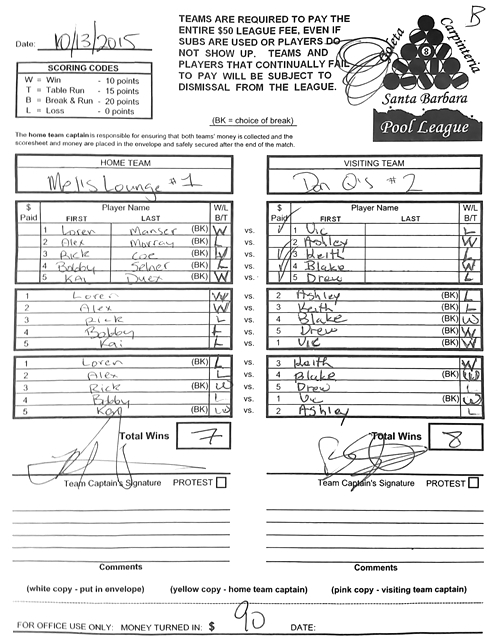 B
Date: 10/13/2015
TEAMS ARE REQUIRED TO PAY THE
ENTIRE $50 LEAGUE FEE, EVEN IF
SUBS ARE USED OR PLAYERS DO
NOT SHOW UP. TEAMS AND
PLAYERS THAT CONTINUALLY FAIL
TO PAY WILL BE SUBJECT TO
DISMISSAL FROM THE LEAGUE.
SCORING CODES
W = Win - 10 points
T = Table Run - 15 points
B = Break & Run - 20 points
L = Loss - 0 points
(BK = choice of break)
Goleta
Carpinteria
8
Santa Barbara
Pool League
The home team captain is responsible for ensuring that both teams' money is collected and the
scoresheet and money are placed in the envelope and safely secured after the end of the match.
HOME TEAM VISITING TEAM
Mel's Lounge #1 Don Q's #2
$ Paid Player Name FIRST LAST W/L B/T $ Paid Player Name FIRST LAST W/L B/T
1 Loren Manser (BK) W vs. 1 Vic L
2 Alex Murray (BK) L vs. 2 Ashley W
3 Rick Coe (BK) W vs. 3 Keith L
4 Bobby (BK) L vs. 4 Blake W
5 Kai (BK) W vs. 5 Drew L
1 Loren W vs. 2 Ashley (BK) L
2 Alex W vs. 3 Keith (BK) L
3 Rick L vs. 4 Blake (BK) W
4 Bobby L vs. 5 Drew (BK) W
5 Kai L vs. 1 Vic (BK) W
1 Loren (BK) L vs. 3 Keith W
2 Alex L vs. 4 Blake (BK) W
3 Rick (BK) W vs. 5 Drew L
4 Bobby L vs. 1 Vic (BK) W
5 Kai (BK) W vs. 2 Ashley L
Total Wins 7 Total Wins 8
Team Captain's Signature PROTEST Team Captain's Signature PROTEST
Comments Comments
(white copy - put in envelope) (yellow copy - home team captain) (pink copy - visiting team captain)
FOR OFFICE USE ONLY: MONEY TURNED IN: $ 90 DATE: